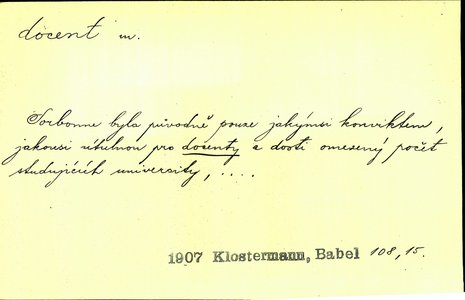 docent m.
Sorbonne byla původně pouze jakýmsi konviktem,
jakousi útulnou pro docenty a dosti omezený počet
studujících university, ....
1907 Klostermann, Babel 108, 15.